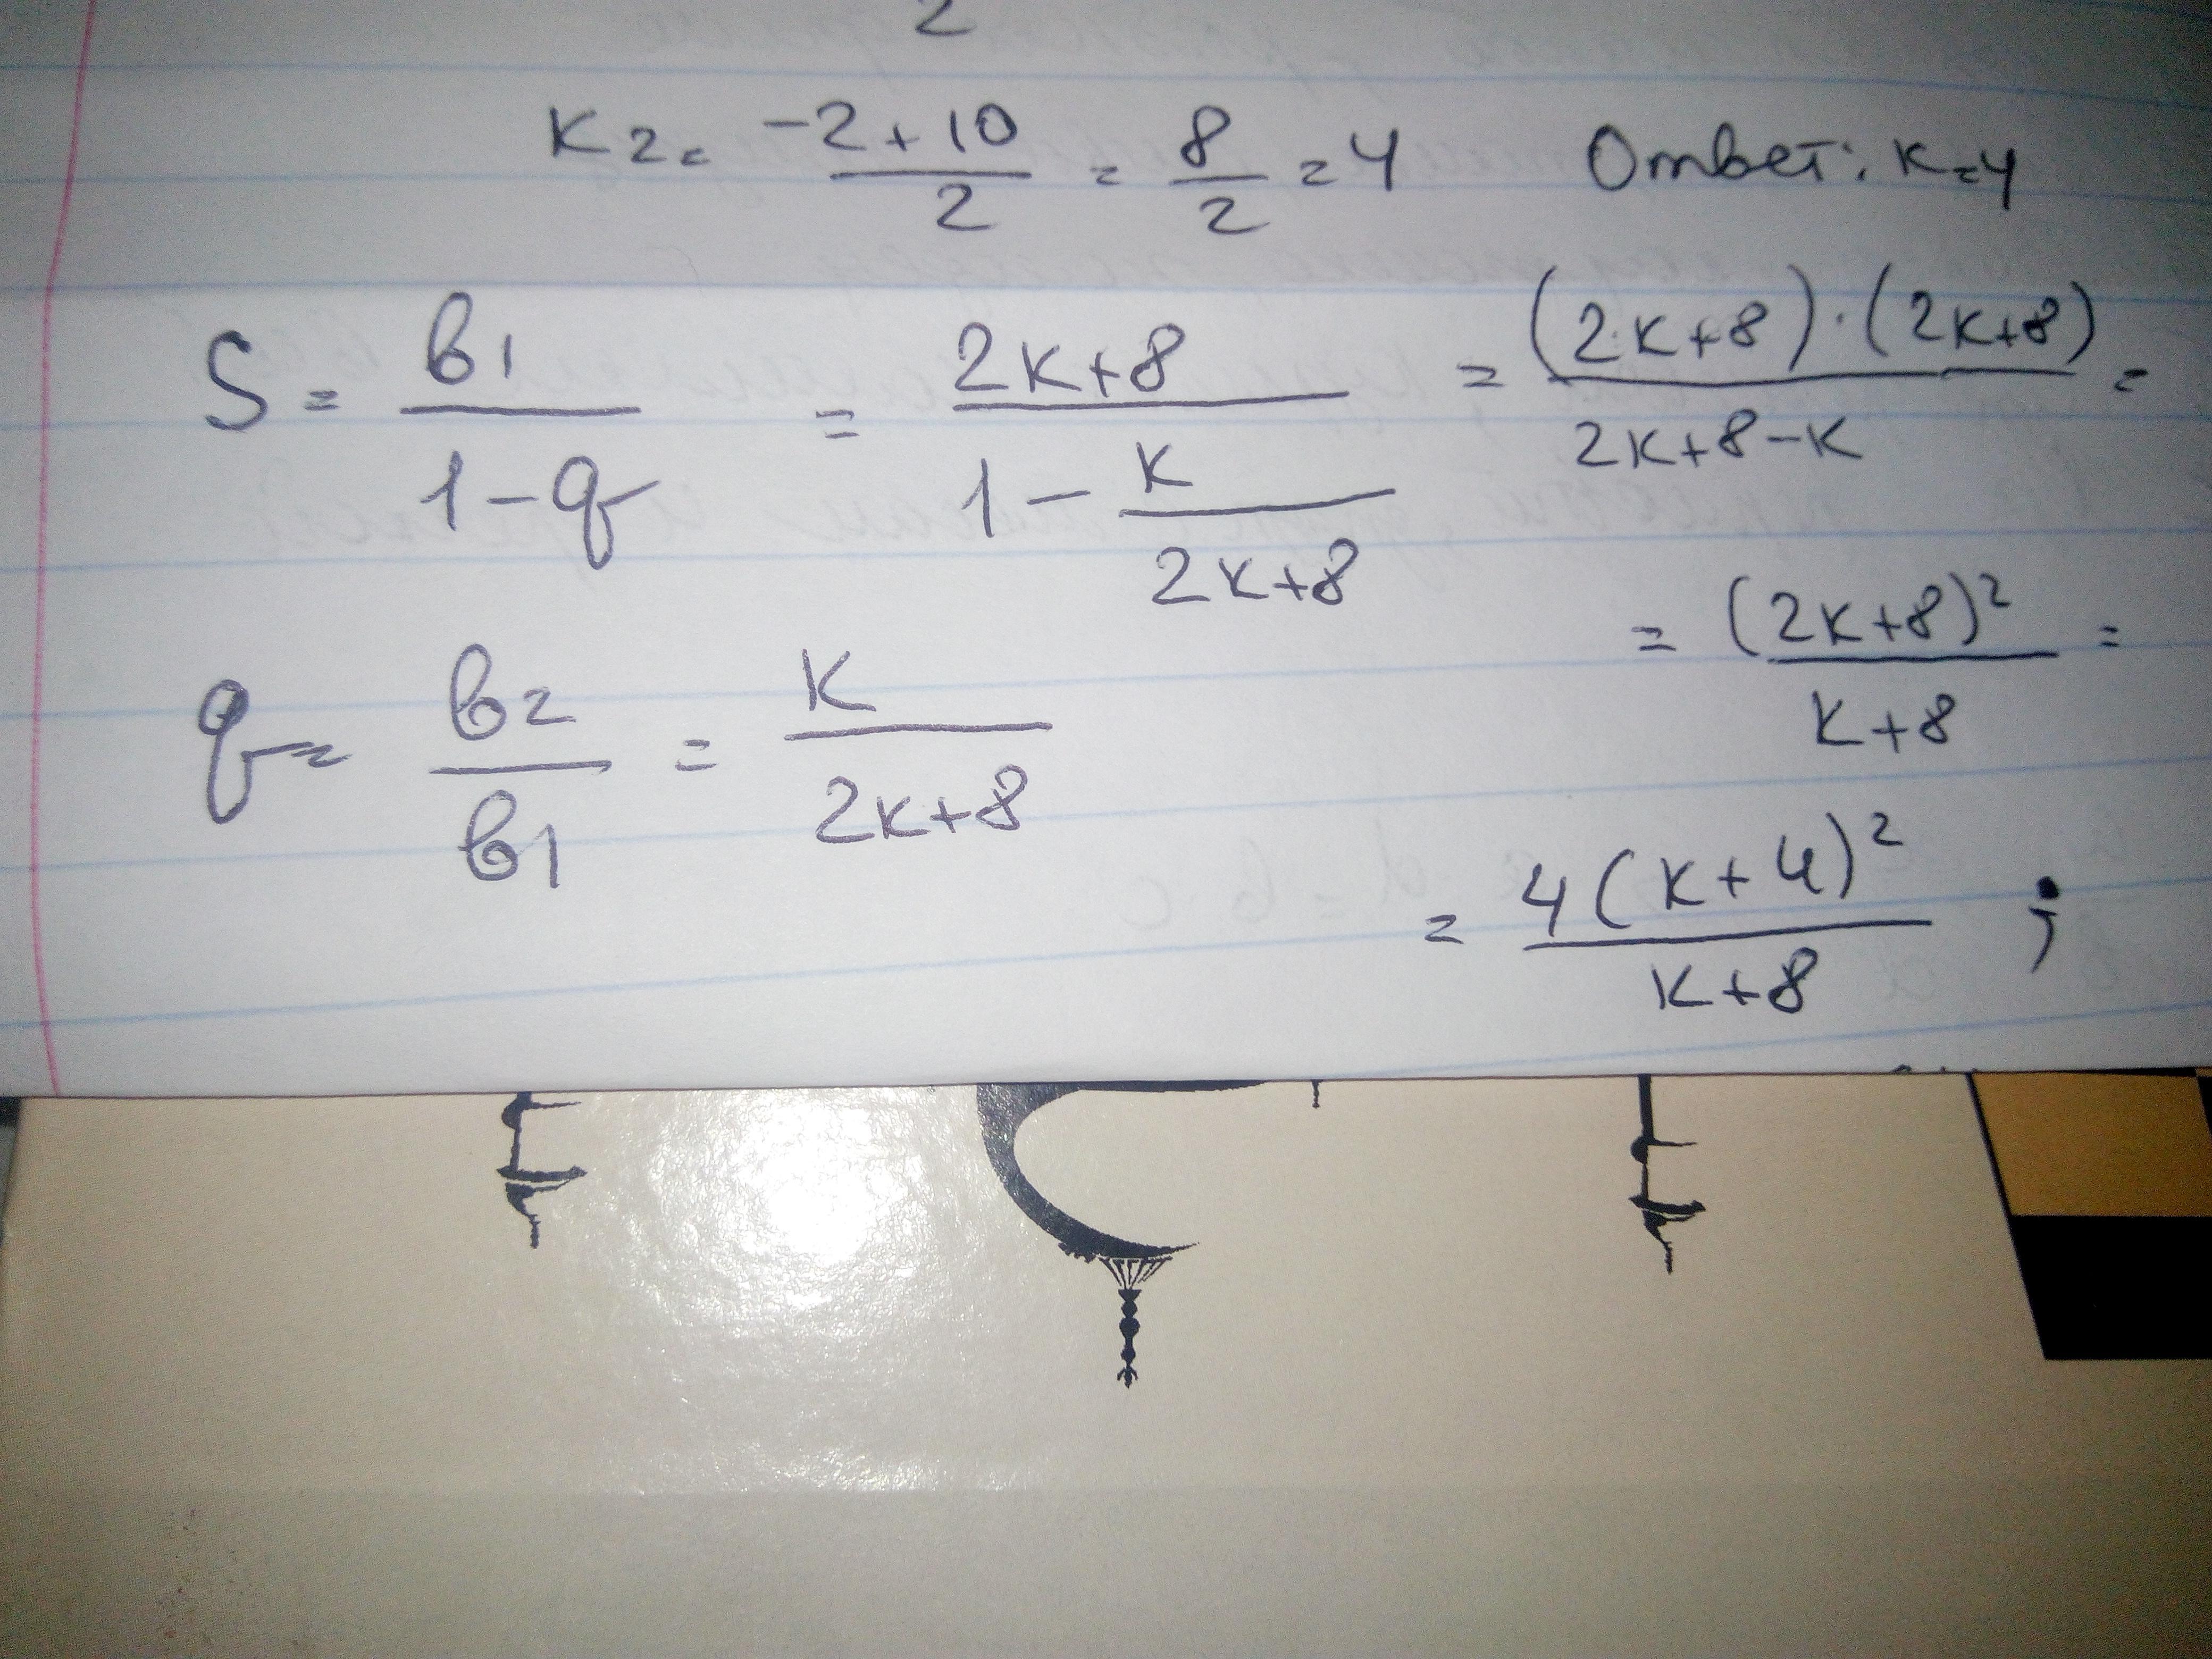 2
K2 = (-2+10)/2 = 8/2 = 4   Ответ: K=4
S = в1/(1-q) = (2K+8)/(1 - K/(2K+8)) = ((2K+8)·(2K+8))/(2K+8-K) =
= (2K+8)²/(K+8) =
q = в2/в1 = K/(2K+8)
= 4(K+4)²/(K+8) ;